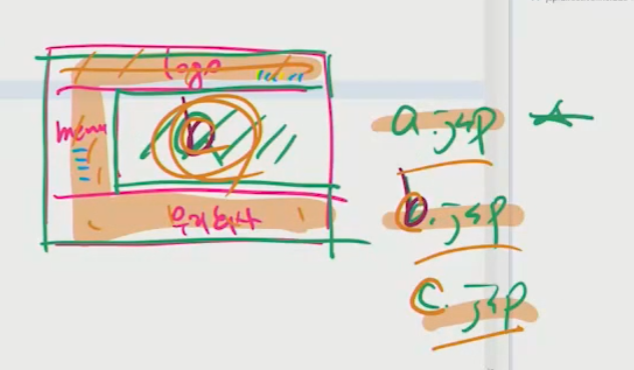 logo
menu
b
우리회사
a.jsp
b.jsp
c.jsp